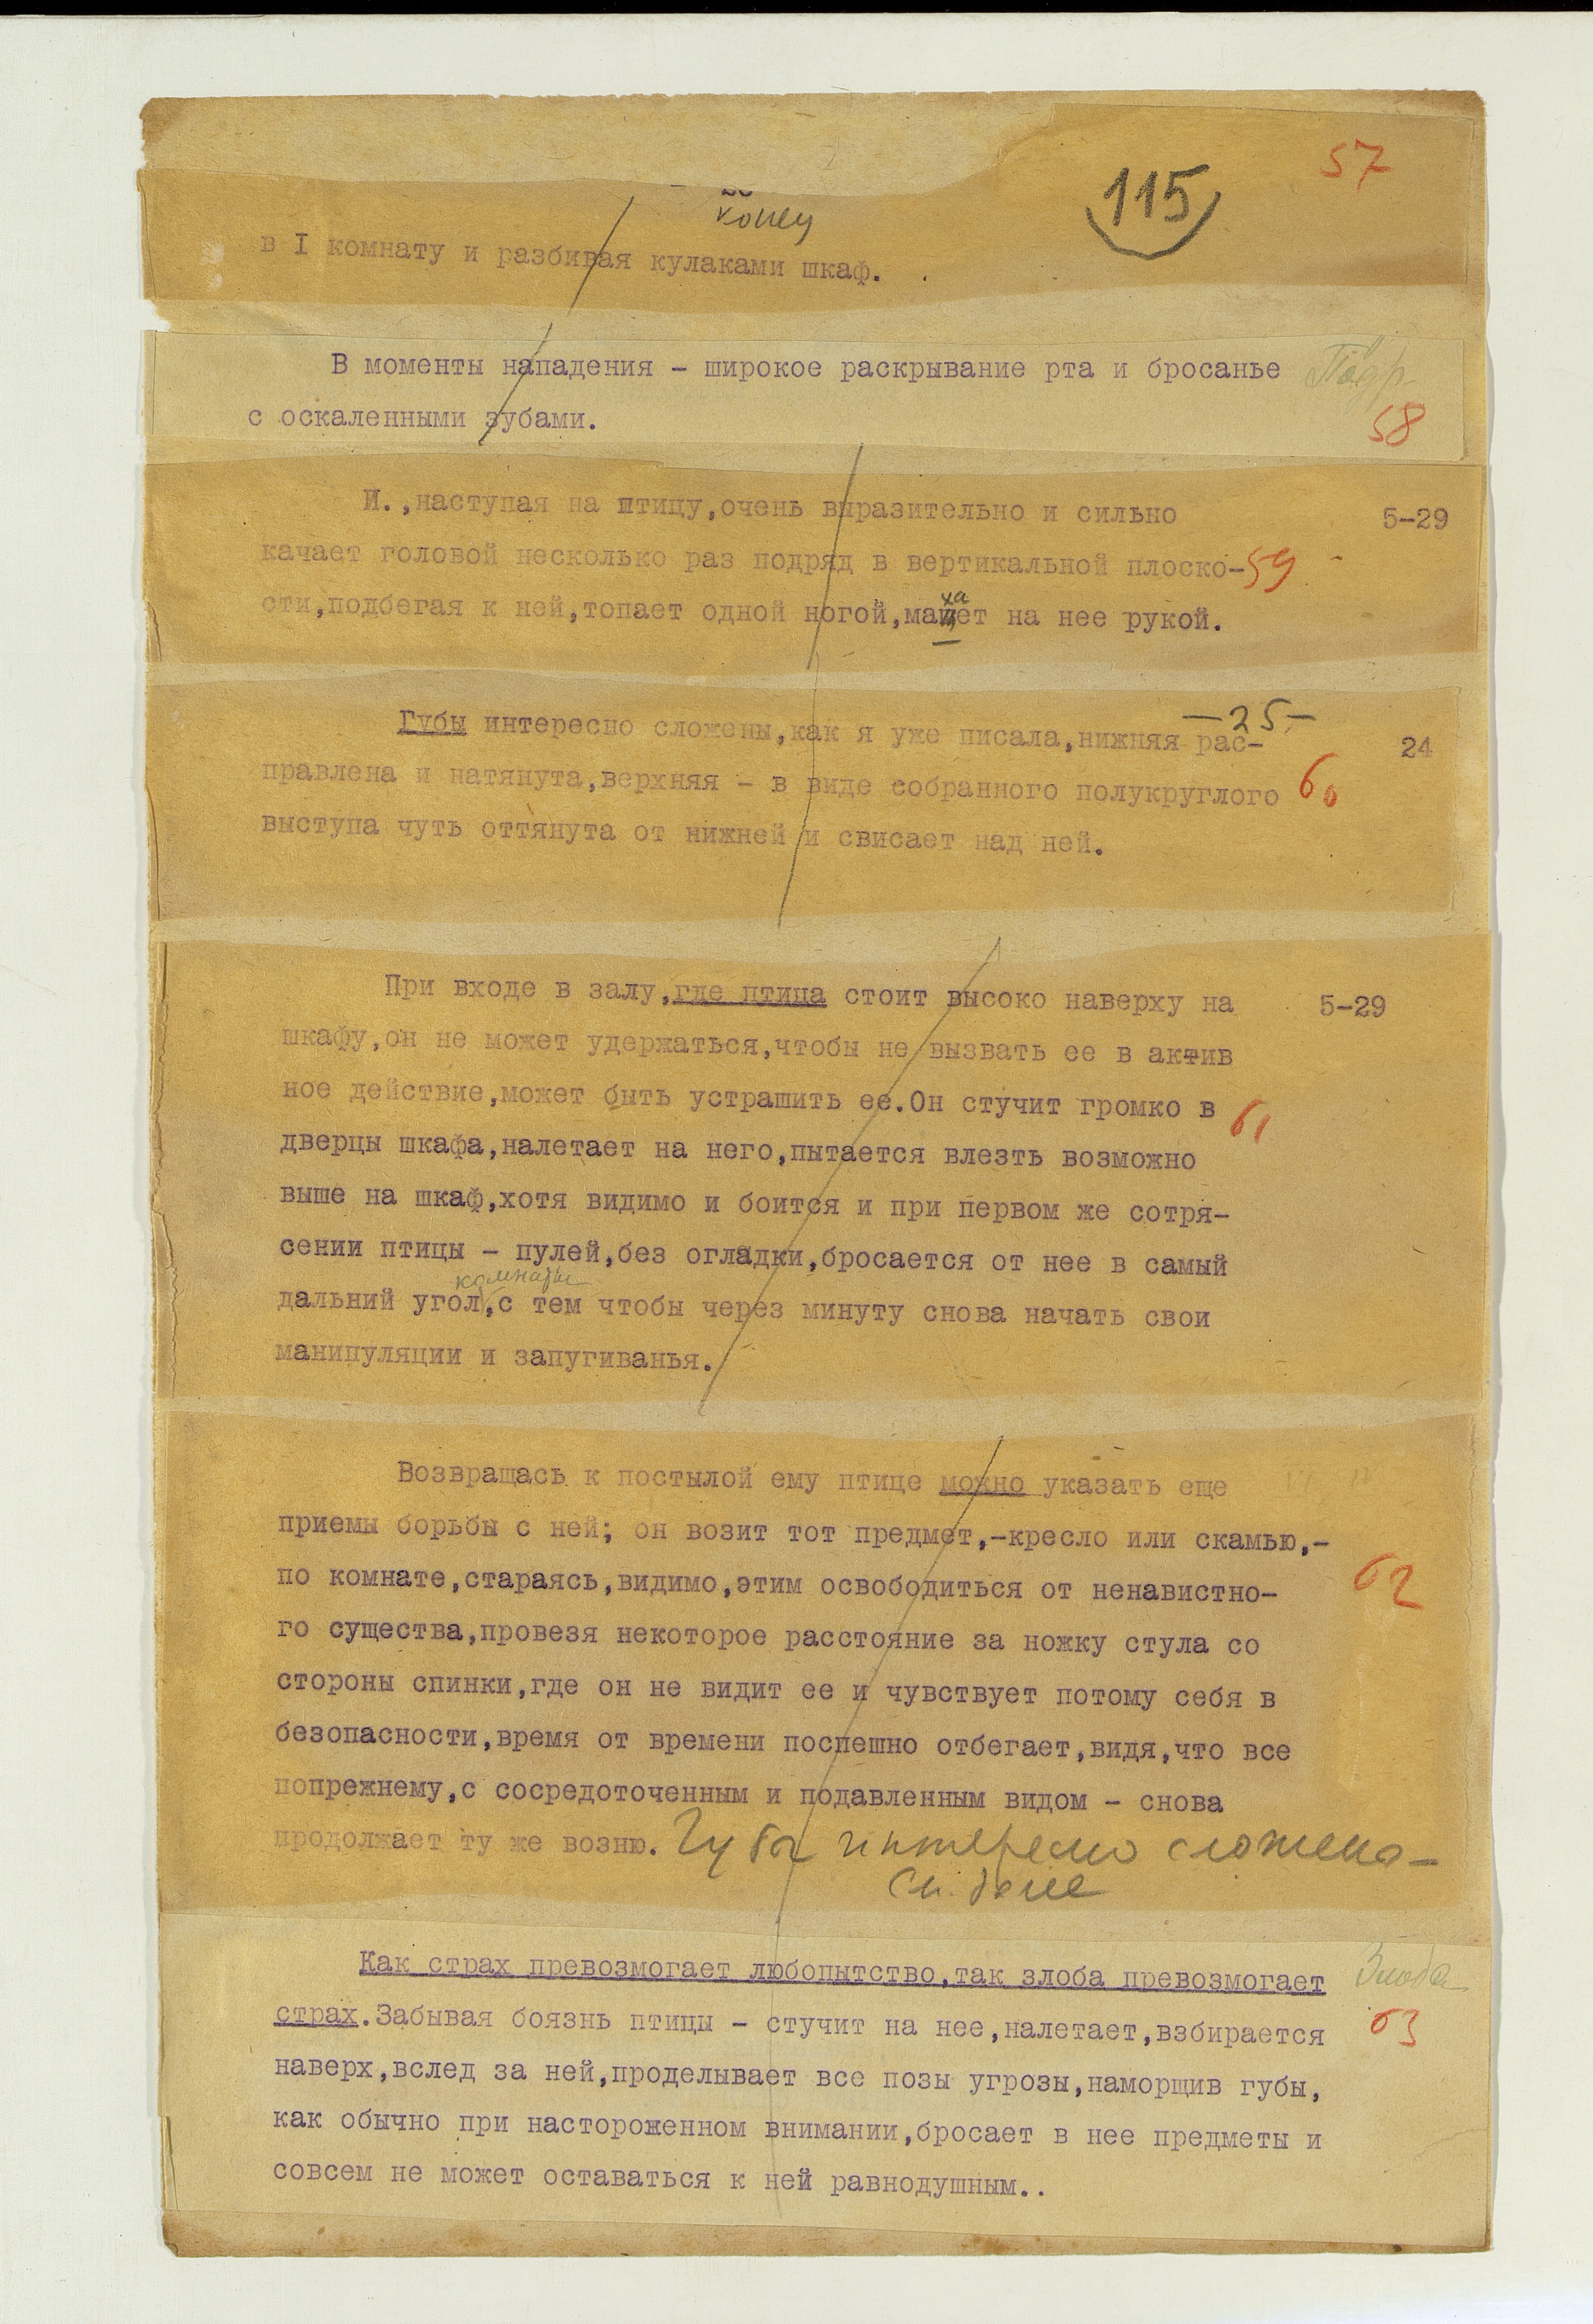 57
115
конец
в I комнату и разбивая кулаками шкаф.
В моменты нападения - широкое раскрывание рта и бросанье
с оскаленными зубами.
58
И.,наступая на птицу,очень выразительно и сильно 5-29
качает головой несколько раз подряд в вертикальной плоско- 59
сти,подбегая к ней,топает одной ногой,махает на нее рукой.
-25-
Губы интересно сложены,как я уже писала,нижняя рас- 24
правлена и натянута,верхняя - в виде собранного полукруглого 60
выступа чуть оттянута от нижней и свисает над ней.
При входе в залу,где птица стоит высоко наверху на 5-29
шкафу,он не может удержаться,чтобы не вызвать ее в актив
ное действие,может быть устрашить ее.Он стучит громко в 61
дверцы шкафа,налетает на него,пытается влезть возможно
выше на шкаф,хотя видимо и боится и при первом же сотря-
сении птицы - пулей,без огладки,бросается от нее в самый
комнаты
дальний угол,с тем чтобы через минуту снова начать свои
манипуляции и запугиванья.
Возвращась к постылой ему птице можно указать еще
приемы борьбы с ней; он возит тот предмет,-кресло или скамью,-
по комнате,стараясь,видимо,этим освободиться от ненавистно- 62
го существа,провезя некоторое расстояние за ножку стула со
стороны спинки,где он не видит ее и чувствует потому себя в
безопасности,время от времени поспешно отбегает,видя,что все
попрежнему,с сосредоточенным и подавленным видом - снова
продолжает ту же возню. Губы интересно сложены-
См. далее
Как страх превозмогает любопытство,так злоба превозмогает Злоба
страх.Забывая боязнь птицы - стучит на нее,налетает,взбирается 63
наверх,вслед за ней,проделывает все позы угрозы,наморщив губы,
как обычно при настороженном внимании,бросает в нее предметы и
совсем не может оставаться к ней равнодушным..